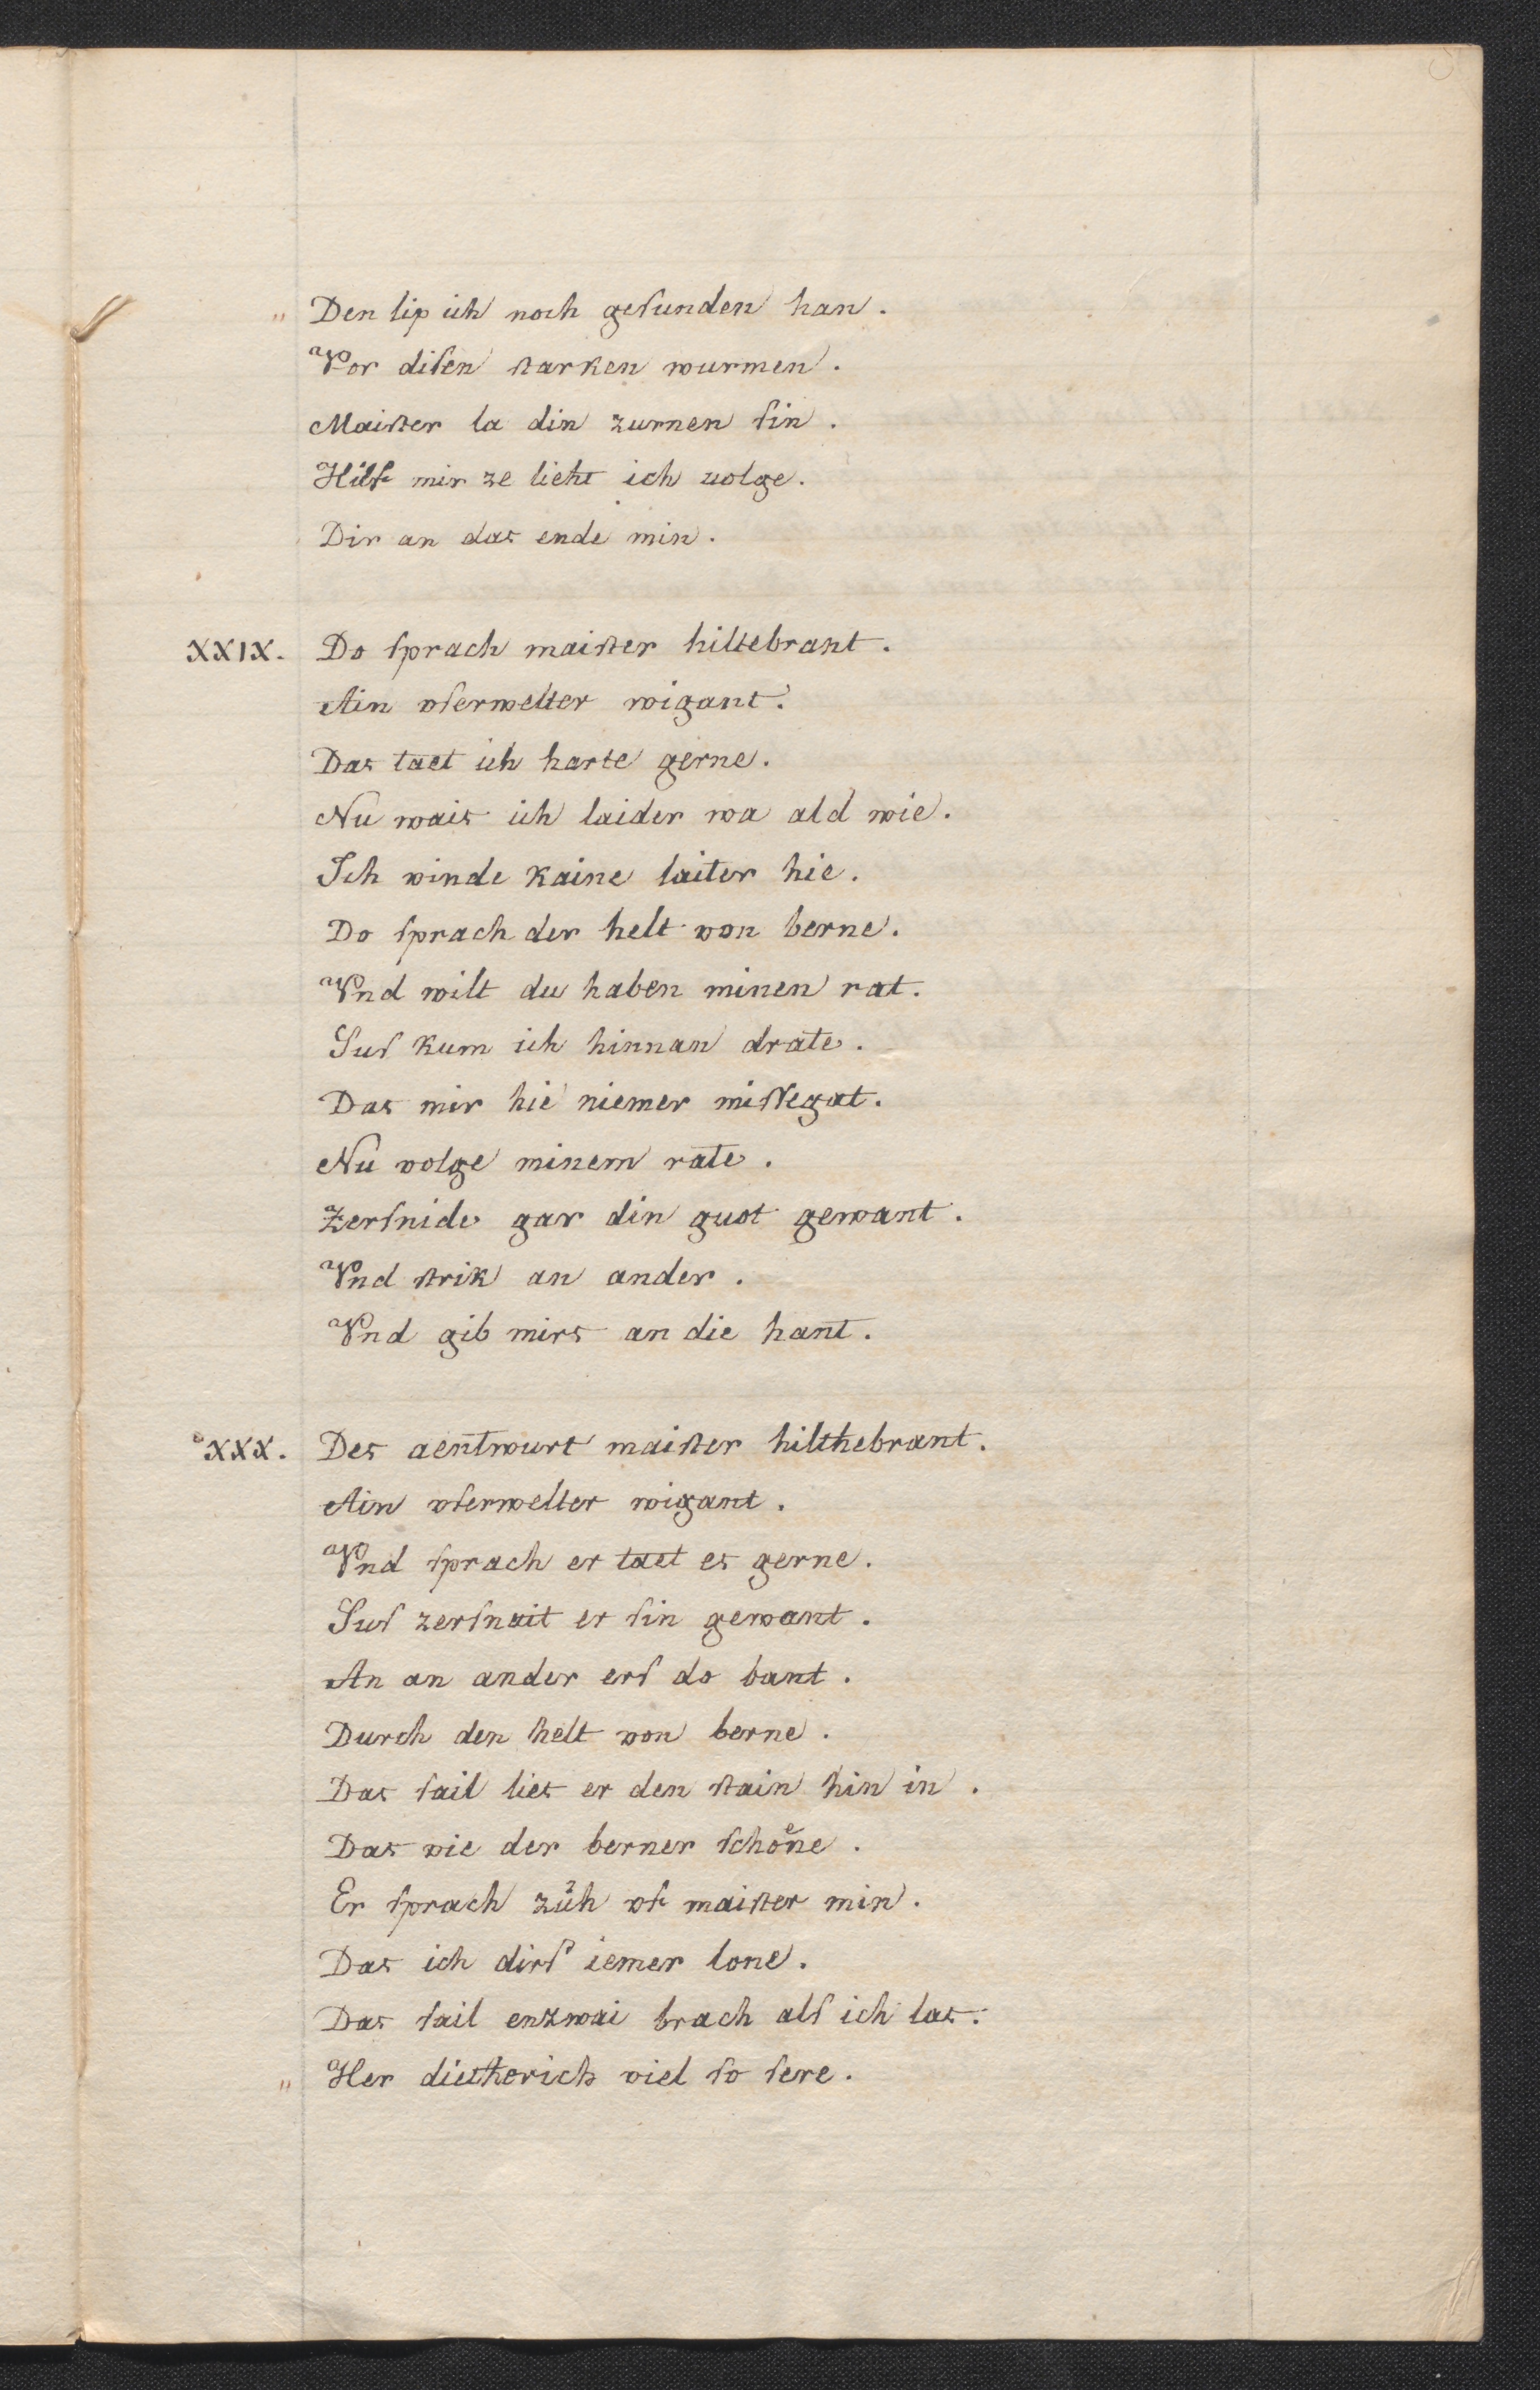 „ Den lip ich noch geſunden han.
Vor diſen ſtarken wurmen.
Maiſter la din zurnen ſin.
Hilf mir ze lieht ich uolge.
Dir an das ende min.
XXIX. Do ſprach maiſter hiltebrant.
Ain vſerwelter wigant.
Das taet ich harte gerne.
Nu wais ich laider wa ald wie.
Ich vinde kaine laiter hie.
Do ſprach der helt von berne.
Vnd wilt du haben minen rat.
Suſ kum ich hinnan drate.
Das mir hie niemer miſſegat.
Nu volge minem rate.
Zerſnide gar din guot gewant.
Vnd ſtrik an ander.
Vnd gib mirs an die hant.
XXX. Des aentwurt maiſter hilthebrant.
Ain vſerwelter wigant.
Vnd ſprach er taet es gerne.
Suſ zerſnait er ſin gewant.
An an ander erſ do bant.
Durch den helt von berne.
Das ſail lies er den ſtain hin in.
Das vie der berner ſchoͤne.
Er ſprach zuͥh vf maiſter min.
Das ich dirſ iemer lone.
Das ſail enzwai brach alſ ich las.
„ Her dietherich viel ſo ſere.